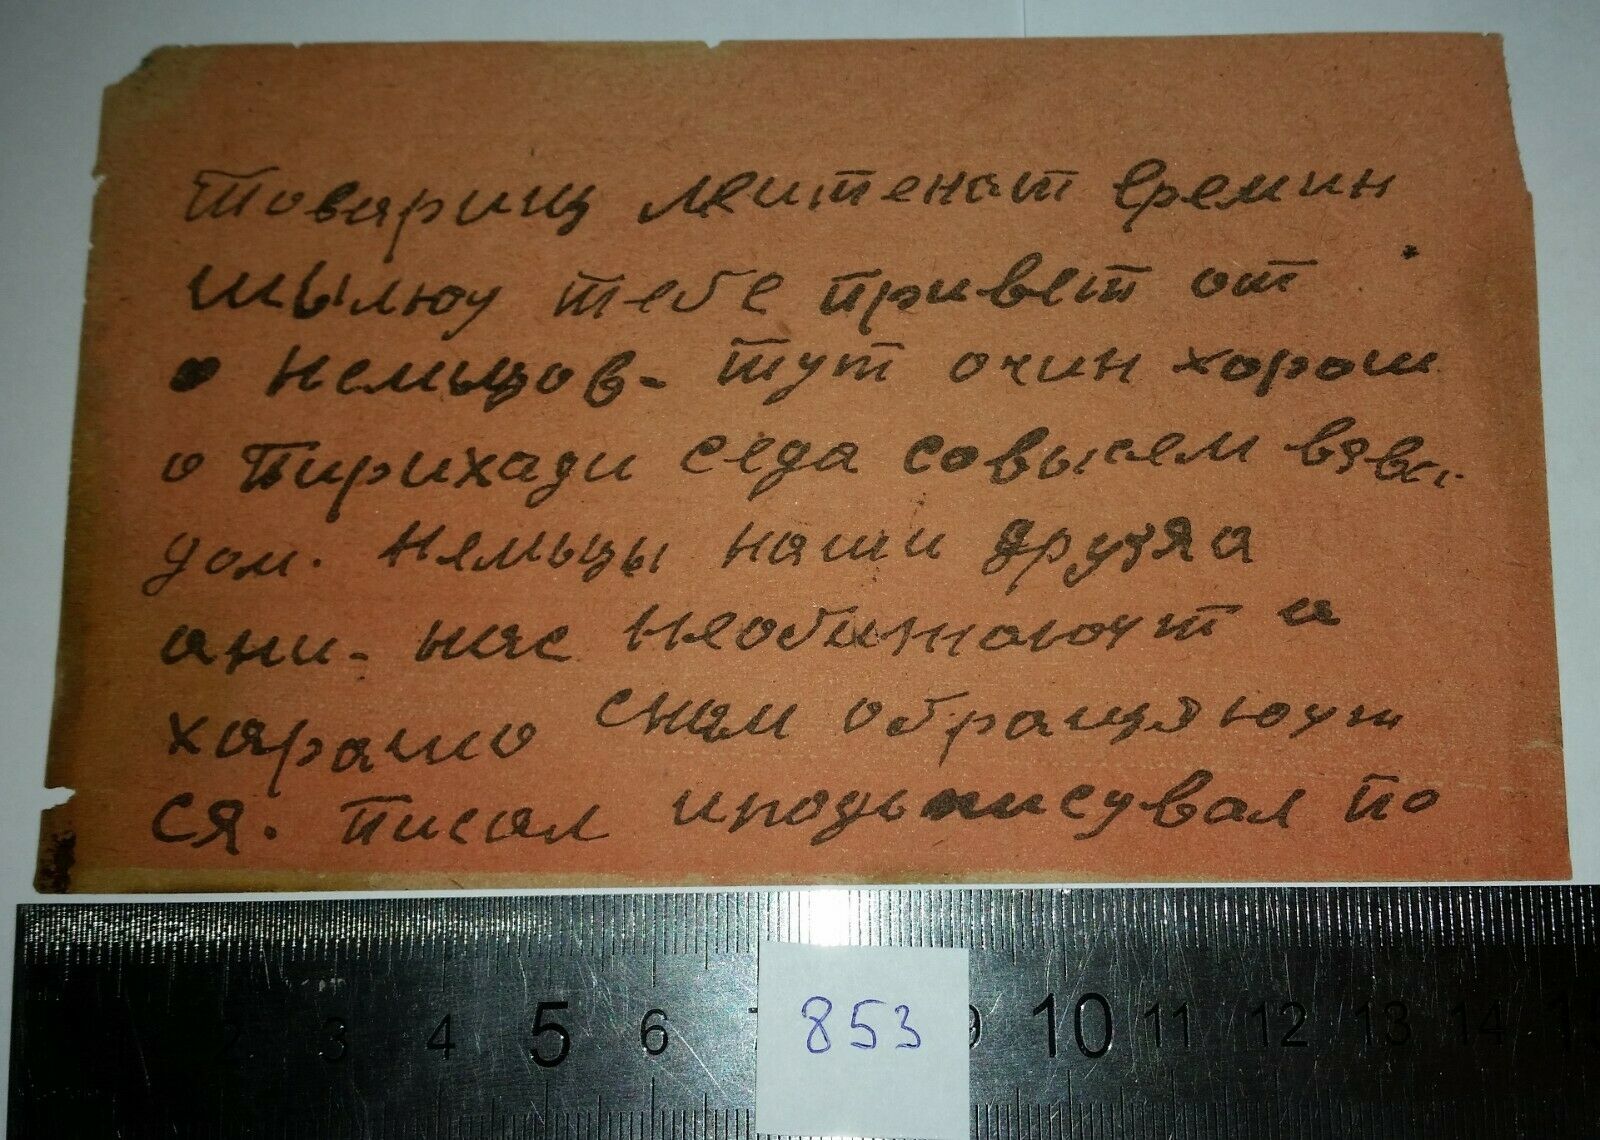 Товарищ леитенат Еремин
шылюу тебе привет от
немьцов- тут очин хорош
о пирихади седа совысем взвы-
дом. Нямьцы наши друзяа
ани- нас необижаюут а
харашо снам обращяюут
ся. писал иподьписувал по
2 3 4 5 6 9 10 11 12 13 14
853